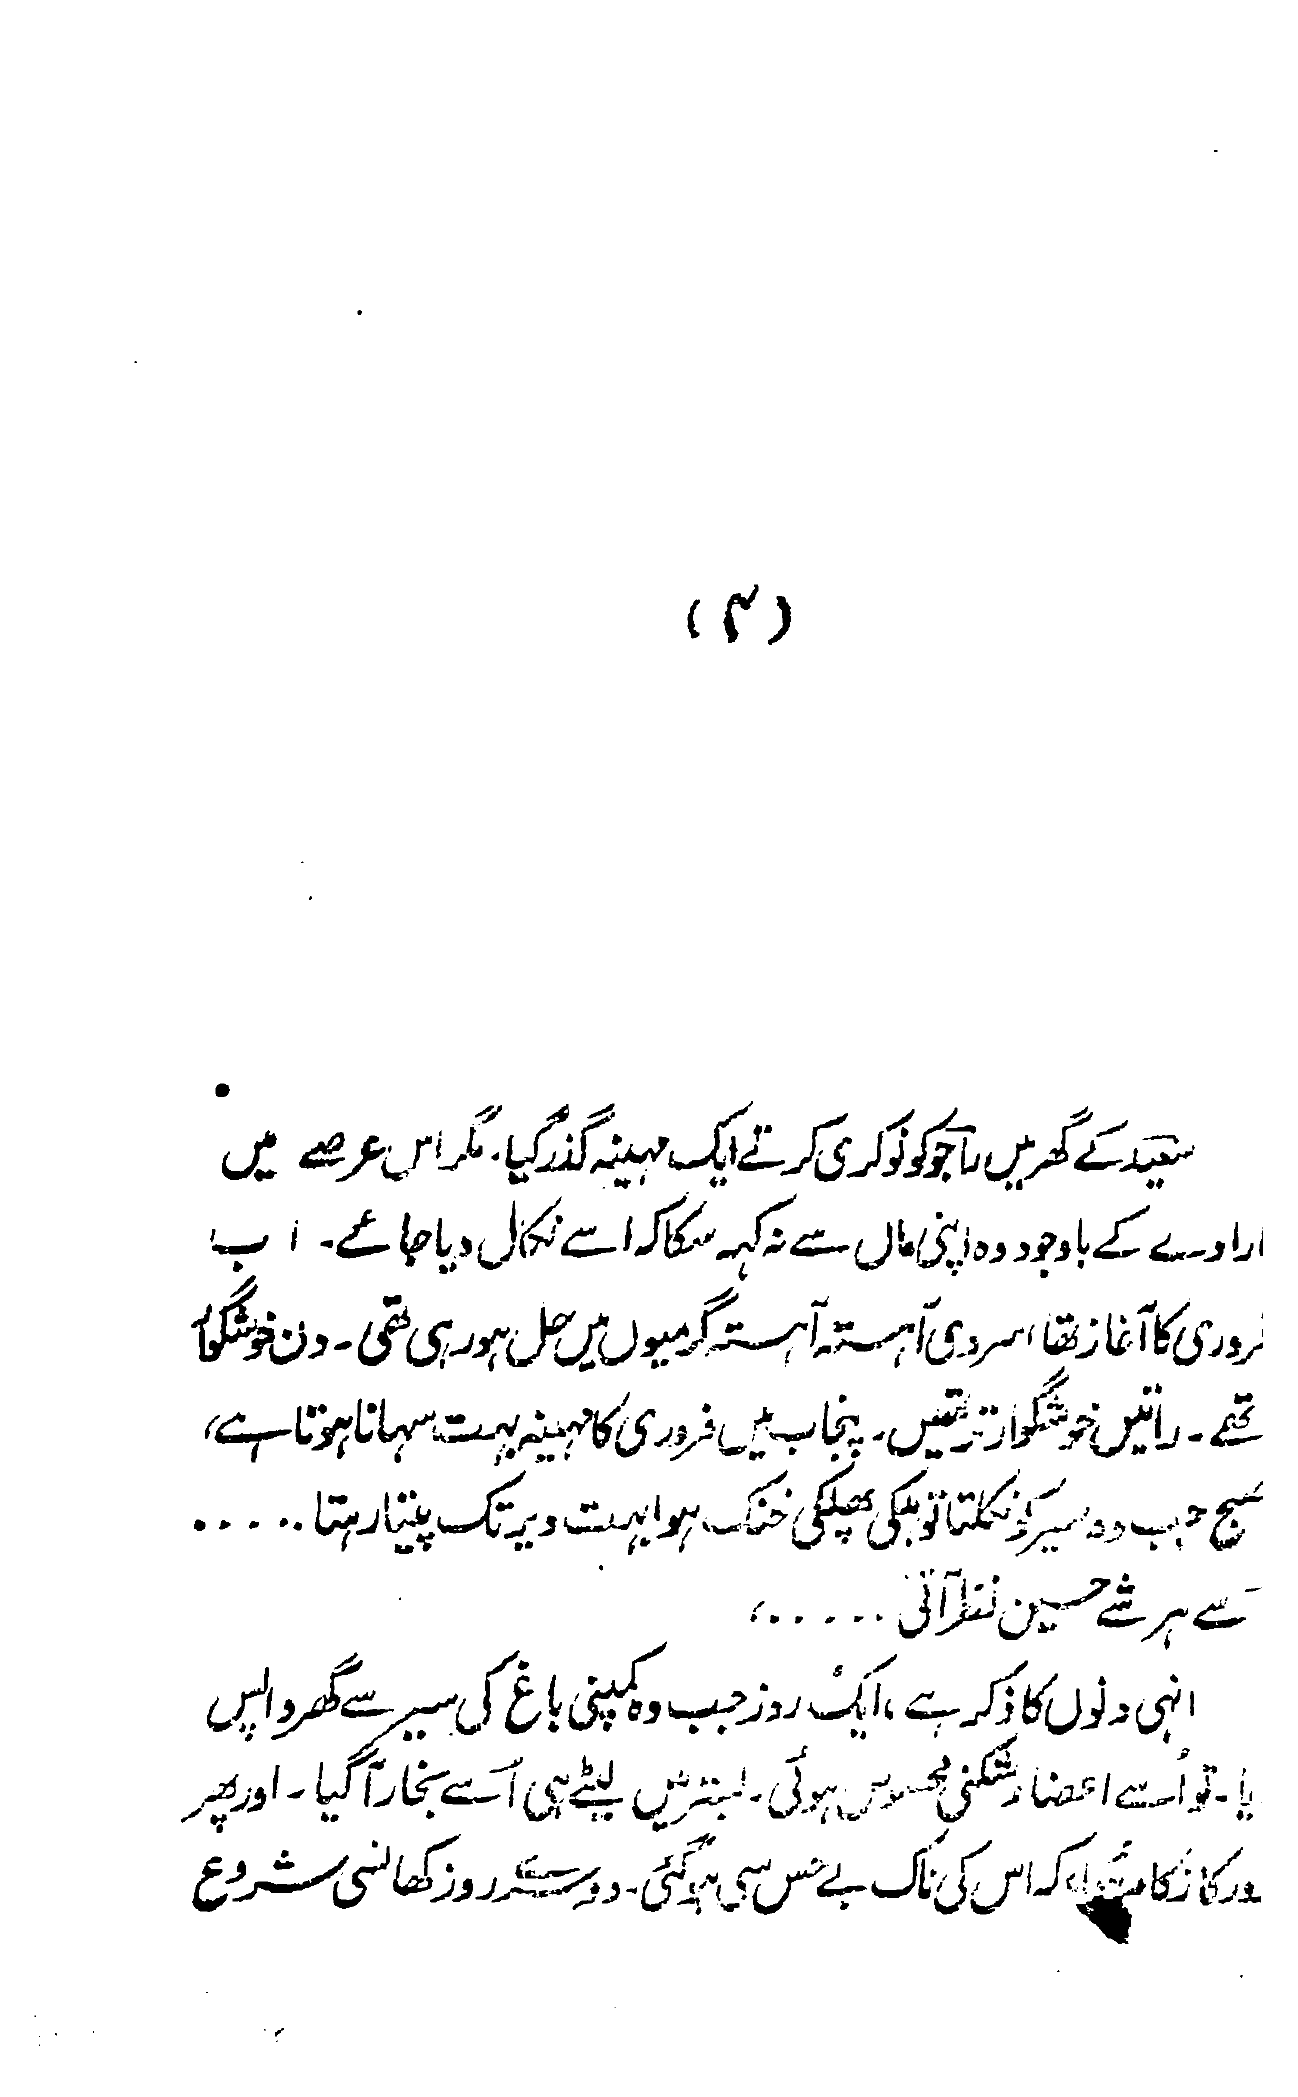 (۴)
سعید کے گھر میں راجو کو نوکری کرتے ایک مہینہ گذر گیا۔ مگر اس عرصے میں
ارادے کے باوجود وہ اپنی ماں سے نہ کہہ سکا کہ اسے نکال دیا جائے۔ اب
فروری کا آغاز تھا، سردی آہستہ آہستہ گرمیوں میں حل ہو رہی تھی۔ دن خوشگوار
تھے۔ راتیں خوشگوار تر تھیں۔ پنجاب میں فروری کا مہینہ بہت سہانا ہوتا ہے،
صبح جب وہ سیر کو نکلتا تو ہلکی پھلکی خنک ہوا بہت دیر تک پیتا رہتا .....
سے ہر شے حسین نظر آتی .....،
انہی دنوں کا ذکر ہے، ایک روز جب وہ کمپنی باغ کی سیر سے گھر واپس
یا۔ تو اُسے اعضا شکنی محسوس ہوئی۔ بستر میں لیٹتے ہی اُسے بخار آگیا۔ اور پھر
ور کا زکام ہُوا کہ اس کی ناک بے حس سی ہو گئی۔ دوسرے روز کھانسی شروع